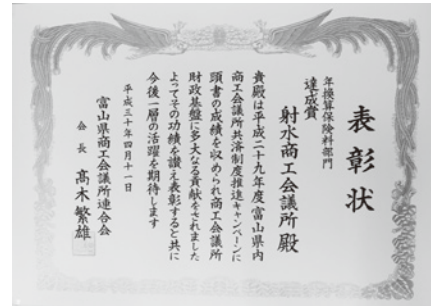 表彰状
年換算保険料部門
達成賞
射水商工会議所殿
貴殿は平成二十九年度富山県内
商工会議所共済制度推進キャンペーンに
頭書の成績を収められ商工会議所
財政基盤に多大なる貢献をされました
よってその功績を讃え表彰すると共に
今後一層の活躍を期待します
平成三十年四月十一日
富山県商工会議所連合会
会長 髙木繁雄